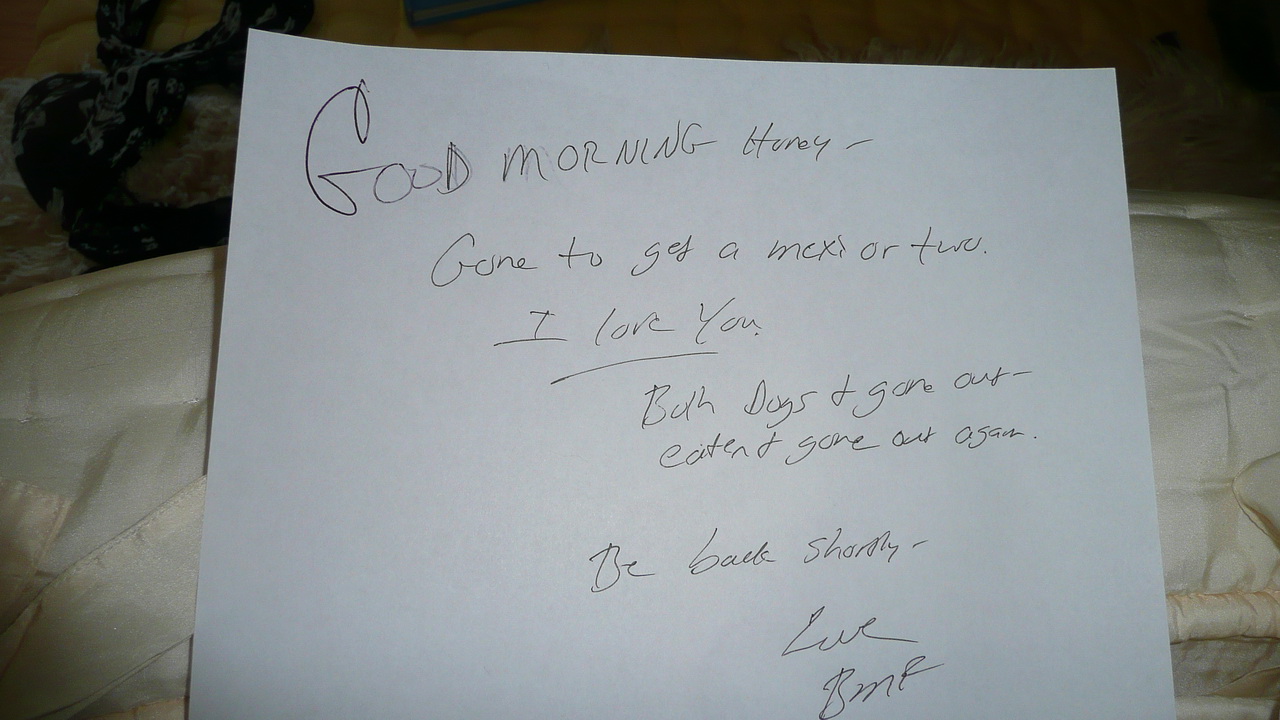 GOOD MORNING Honey -
Gone to get a mexi or two.
I love You.
Both Dogs & gone out -
eaten & gone out again.
Be back shortly -
Love
BMF